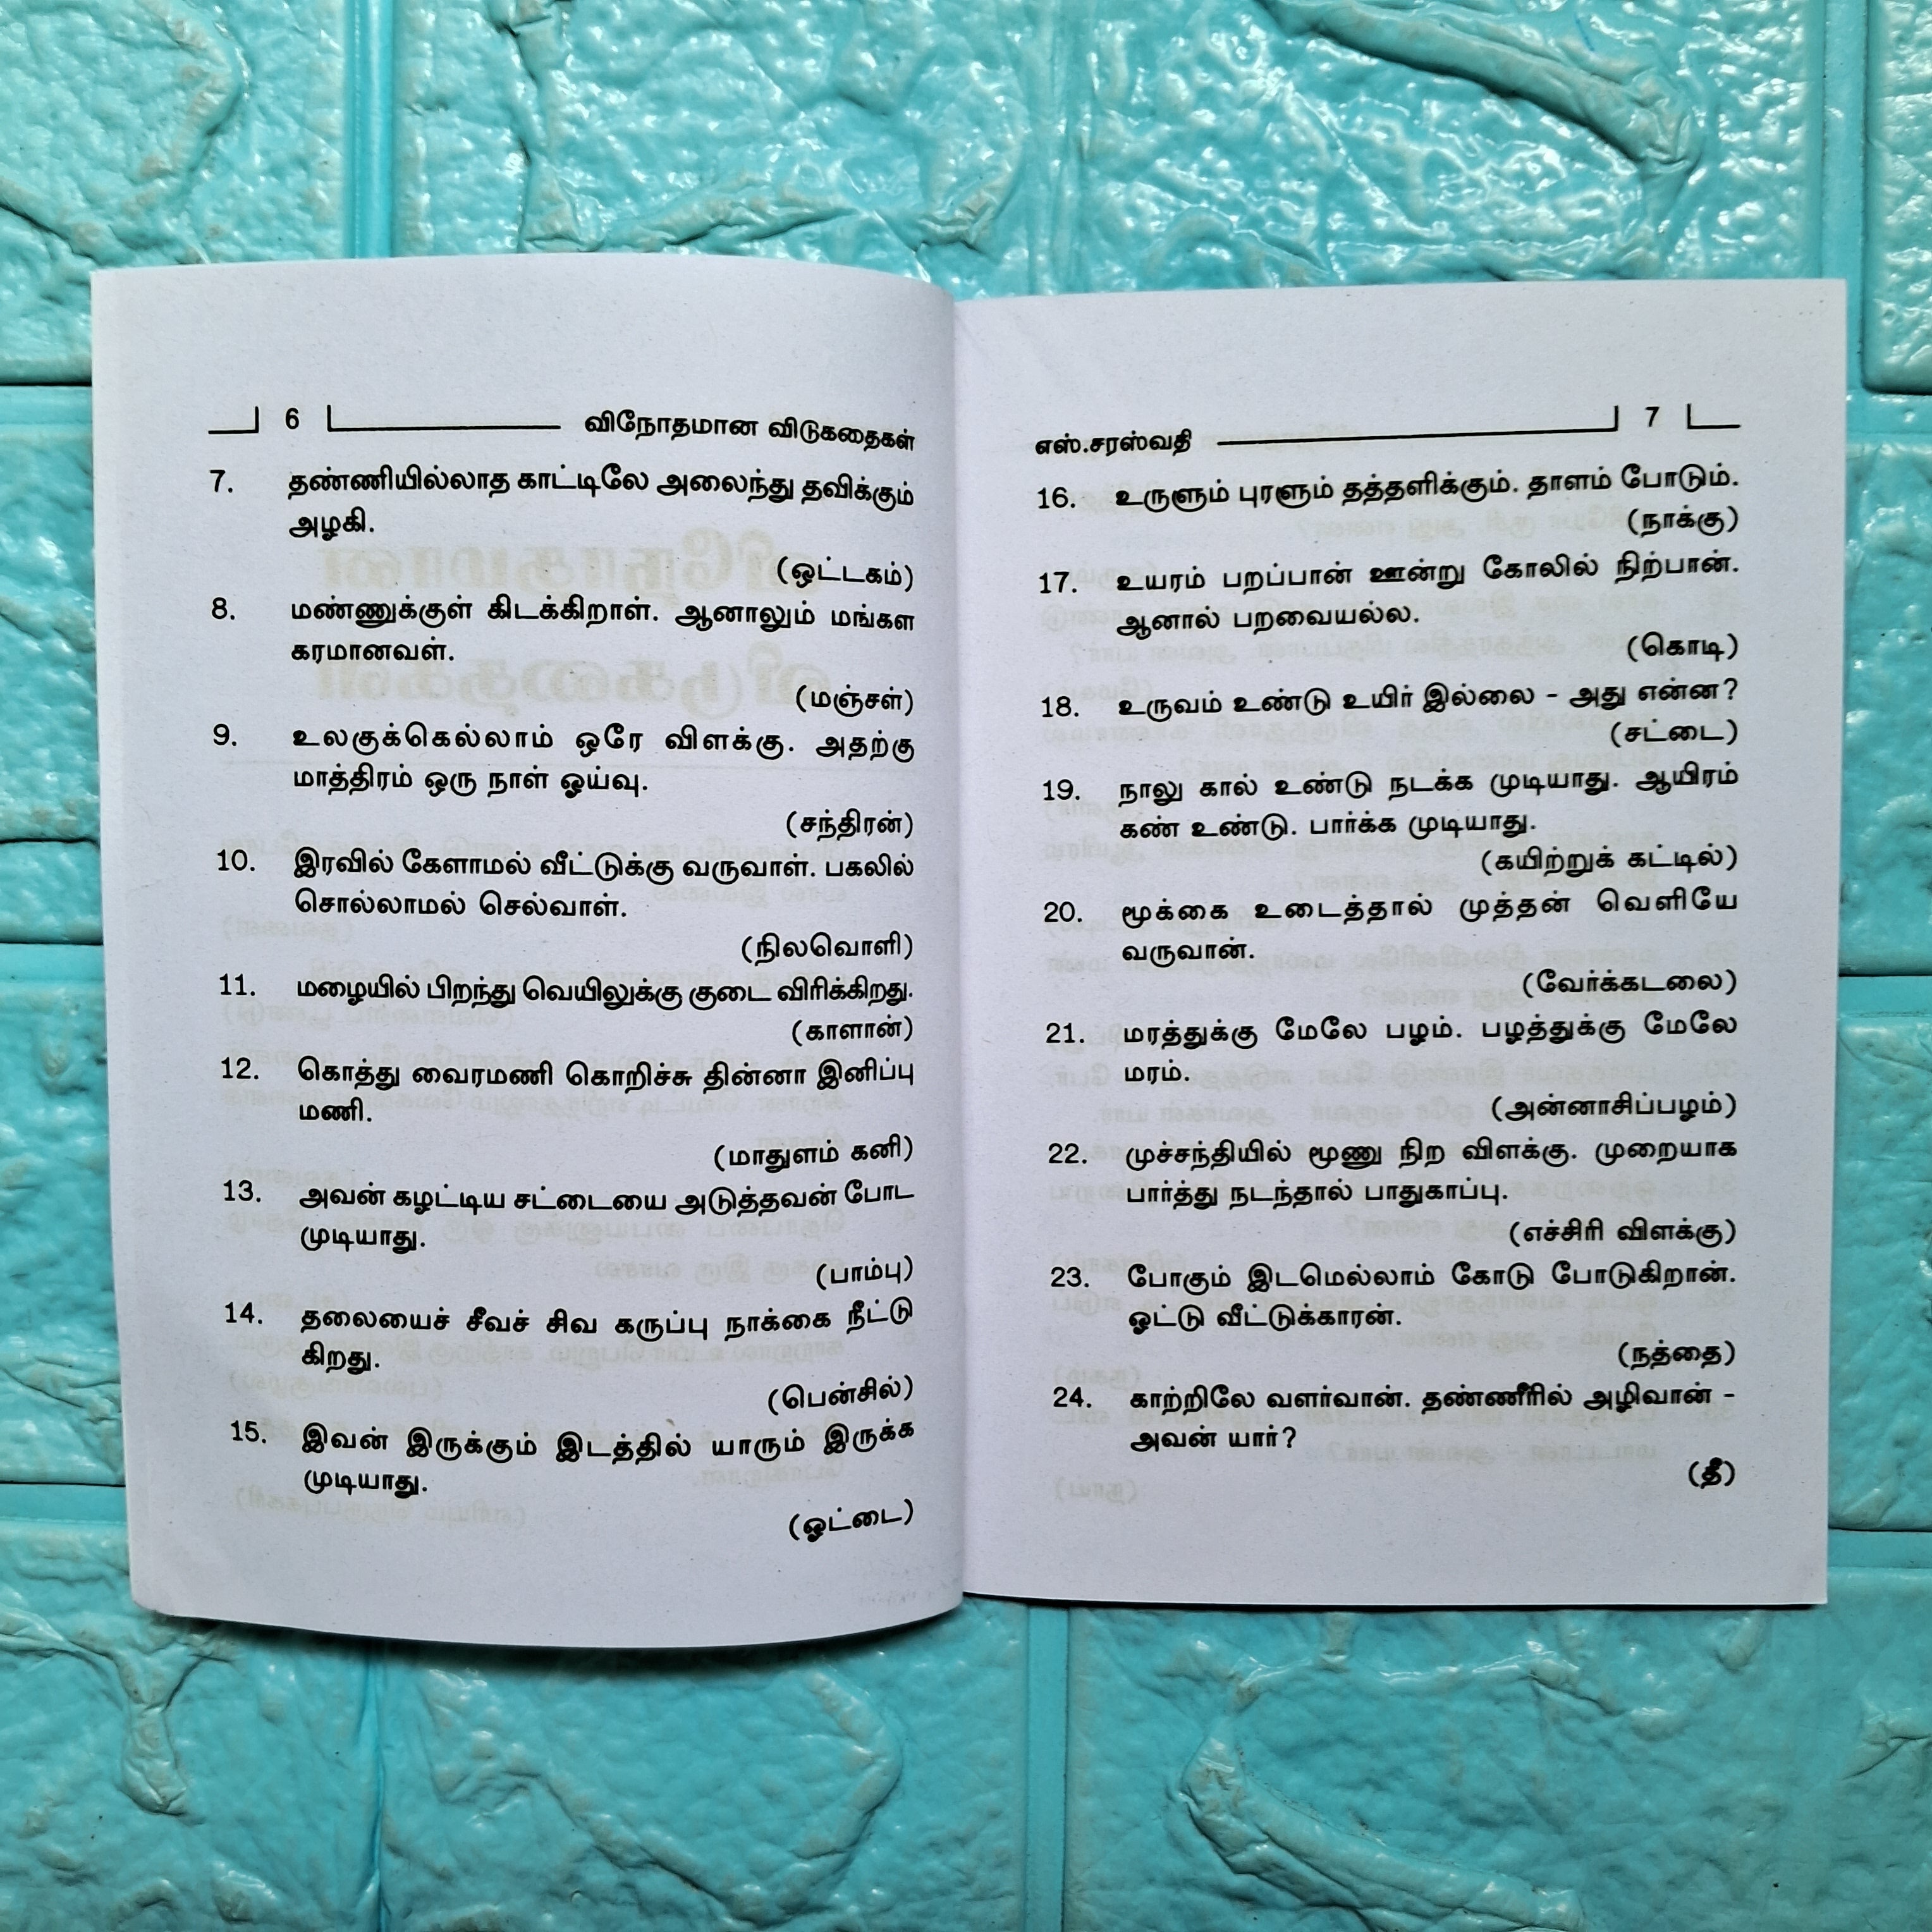 6 விநோதமான விடுகதைகள்
7. தண்ணியில்லாத காட்டிலே அலைந்து தவிக்கும்
அழகி.
(ஒட்டகம்)
8. மண்ணுக்குள் கிடக்கிறாள். ஆனாலும் மங்கள
கரமானவள்.
(மஞ்சள்)
9. உலகுக்கெல்லாம் ஒரே விளக்கு. அதற்கு
மாத்திரம் ஒரு நாள் ஓய்வு.
(சந்திரன்)
10. இரவில் கேளாமல் வீட்டுக்கு வருவாள். பகலில்
சொல்லாமல் செல்வாள்.
(நிலவொளி)
11. மழையில் பிறந்து வெயிலுக்கு குடை விரிக்கிறது.
(காளான்)
12. கொத்து வைரமணி கொறிச்சு தின்னா இனிப்பு
மணி.
(மாதுளம் கனி)
13. அவன் கழட்டிய சட்டையை அடுத்தவன் போட
முடியாது.
(பாம்பு)
14. தலையைச் சீவச் சிவ கருப்பு நாக்கை நீட்டு
கிறது.
(பென்சில்)
15. இவன் இருக்கும் இடத்தில் யாரும் இருக்க
முடியாது.
(ஓட்டை)
எஸ்.சரஸ்வதி 7
16. உருளும் புரளும் தத்தளிக்கும். தாளம் போடும்.
(நாக்கு)
17. உயரம் பறப்பான் ஊன்று கோலில் நிற்பான்.
ஆனால் பறவையல்ல.
(கொடி)
18. உருவம் உண்டு உயிர் இல்லை - அது என்ன?
(சட்டை)
19. நாலு கால் உண்டு நடக்க முடியாது. ஆயிரம்
கண் உண்டு. பார்க்க முடியாது.
(கயிற்றுக் கட்டில்)
20. மூக்கை உடைத்தால் முத்தன் வெளியே
வருவான்.
(வேர்க்கடலை)
21. மரத்துக்கு மேலே பழம். பழத்துக்கு மேலே
மரம்.
(அன்னாசிப்பழம்)
22. முச்சந்தியில் மூணு நிற விளக்கு. முறையாக
பார்த்து நடந்தால் பாதுகாப்பு.
(எச்சிரி விளக்கு)
23. போகும் இடமெல்லாம் கோடு போடுகிறான்.
ஓட்டு வீட்டுக்காரன்.
(நத்தை)
24. காற்றிலே வளர்வான். தண்ணீரில் அழிவான் -
அவன் யார்?
(தீ)